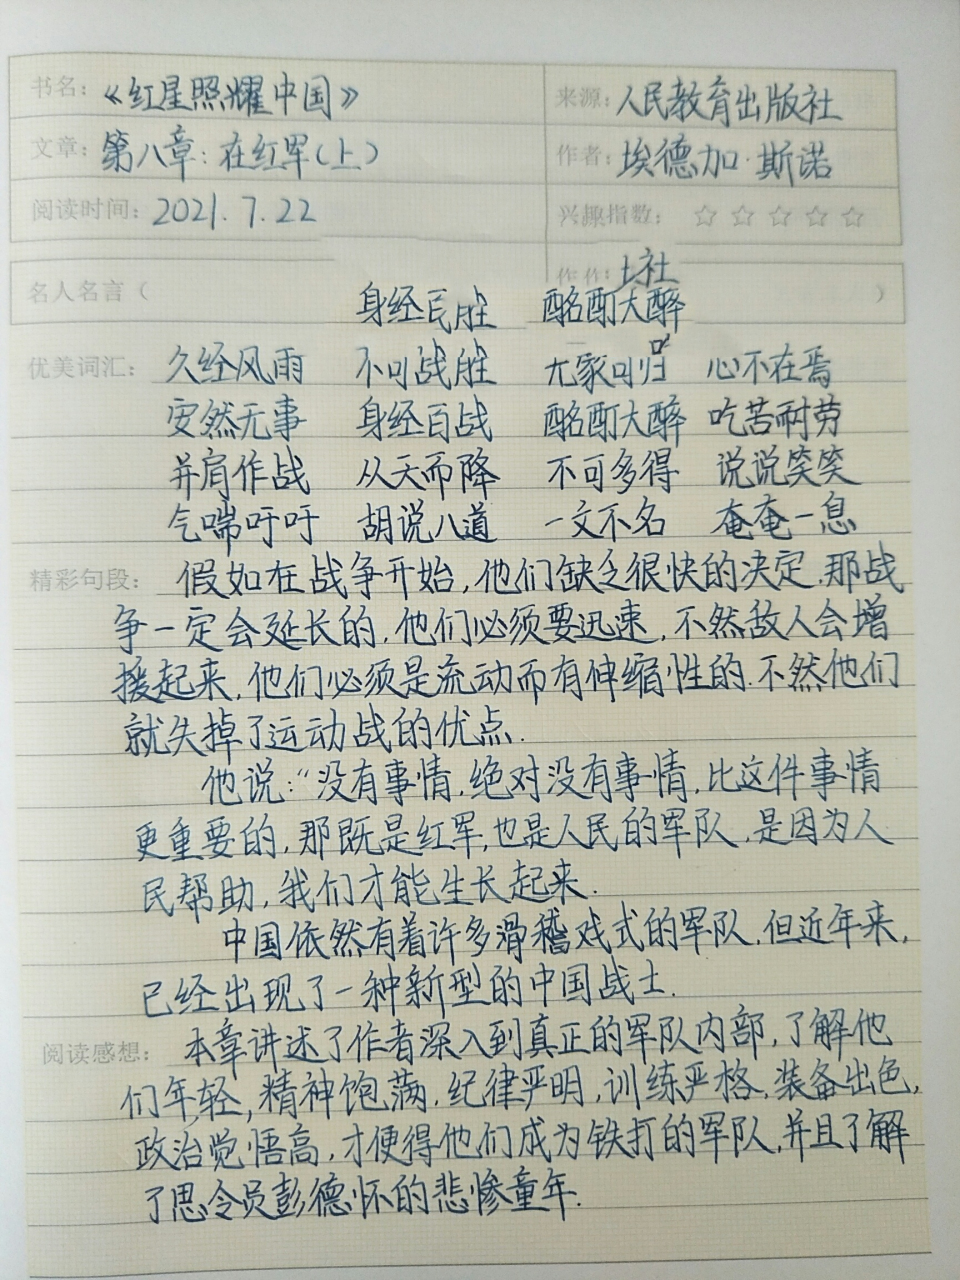 书名：《红星照耀中国》 来源：人民教育出版社
文章：第八章：在红军（上） 作者：埃德加·斯诺
阅读时间：2021.7.22 兴趣指数：☆☆☆☆☆
土社
名人名言（ 身经 胜 酩酊大醉 ）
优美词汇：久经风雨 不可战胜 无家可归 心不在焉
安然无事 身经百战 酩酊大醉 吃苦耐劳
并肩作战 从天而降 不可多得 说说笑笑
气喘吁吁 胡说八道 一文不名 奄奄一息
精彩句段：假如在战争开始，他们缺乏很快的决定，那战
争一定会延长的，他们必须要迅速，不然敌人会增
援起来，他们必须是流动而有伸缩性的，不然他们
就失掉了运动战的优点.
他说：“没有事情，绝对没有事情，比这件事情
更重要的，那既是红军，也是人民的军队，是因为人
民帮助，我们才能生长起来.
中国依然有着许多滑稽戏式的军队，但近年来，
已经出现了一种新型的中国战士.
阅读感想：本章讲述了作者深入到真正的军队内部，了解他
们年轻，精神饱满，纪律严明，训练严格，装备出色，
政治觉悟高，才使得他们成为铁打的军队，并且了解
了思令员彭德怀的悲惨童年.